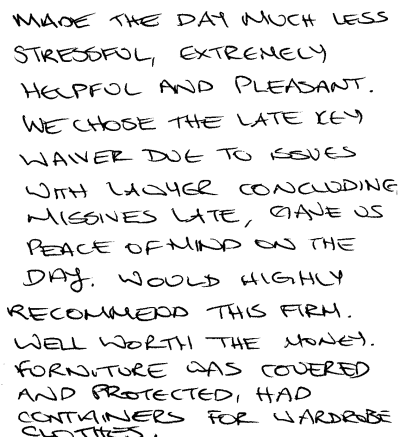 MADE THE DAY MUCH LESS
STRESSFUL, EXTREMELY
HELPFUL AND PLEASANT.
WE CHOSE THE LATE KEY
WAIVER DUE TO ISSUES
WITH LAWYER CONCLUDING
MISSIVES LATE, GAVE US
PEACE OF MIND ON THE
DAY. WOULD HIGHLY
RECOMMEND THIS FIRM.
WELL WORTH THE MONEY.
FURNITURE WAS COVERED
AND PROTECTED, HAD
CONTAINERS FOR WARDROBE
CLOTHES.